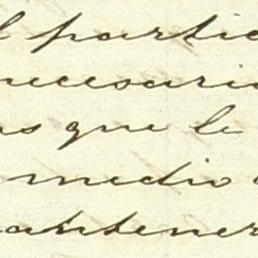 l partic
necesari
as que le
medio
antener